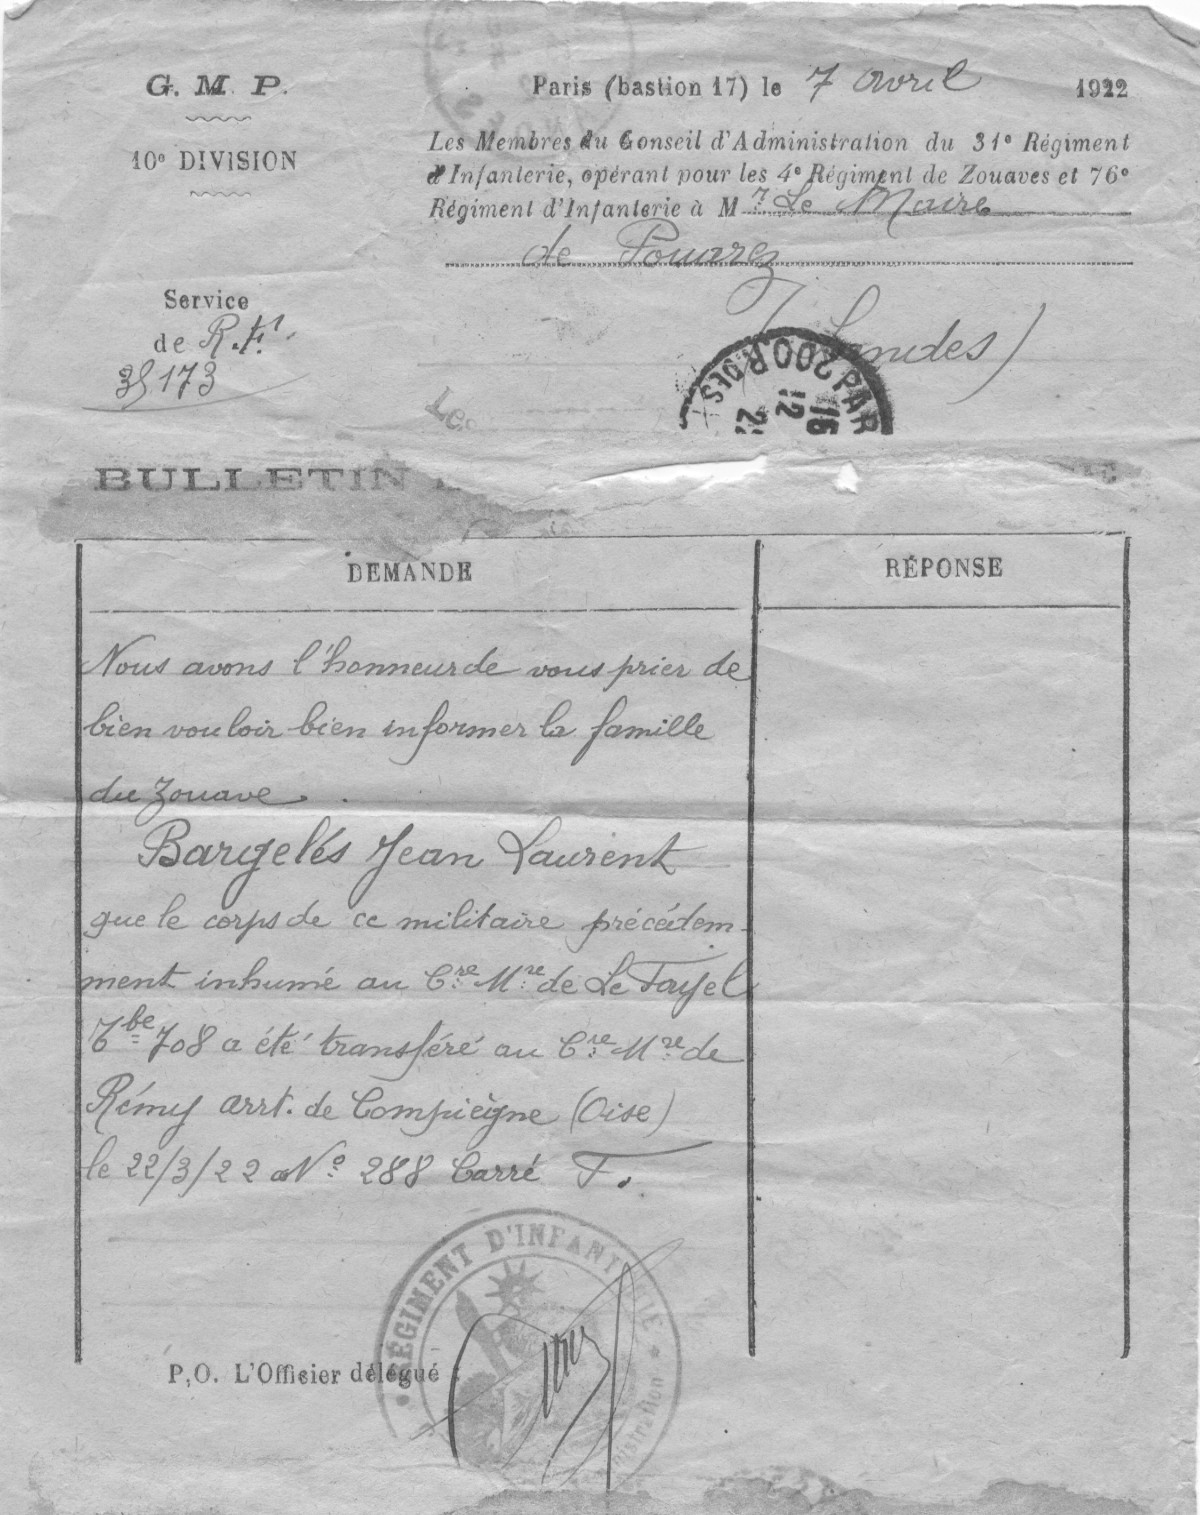 G. M. P.
10e DIVISION
Paris (bastion 17) le 7 avril 1922
Les Membres du Conseil d'Administration du 31e Régiment
d'Infanterie, opérant pour les 4e Régiment de Zouaves et 76e
Régiment d'Infanterie à Mr Le Maire
de Pouarez
(Landes)
Service
de R.F.
35173
PAR
16
12
BULLETIN
DEMANDE
RÉPONSE
Nous avons l'honneur de vous prier de
bien vouloir bien informer la famille
du Zouave.
Bargelés Jean Laurent
que le corps de ce militaire précédem-
ment inhumé au Cre Mre de Le Fayel
Tbe 708 a été transféré au Cre Mre de
Rémy arrt. de Compiègne (Oise)
le 22/3/22 N° 288 Carré F.
RÉGIMENT D'INFANTERIE
P,O. L'Officier délégué :